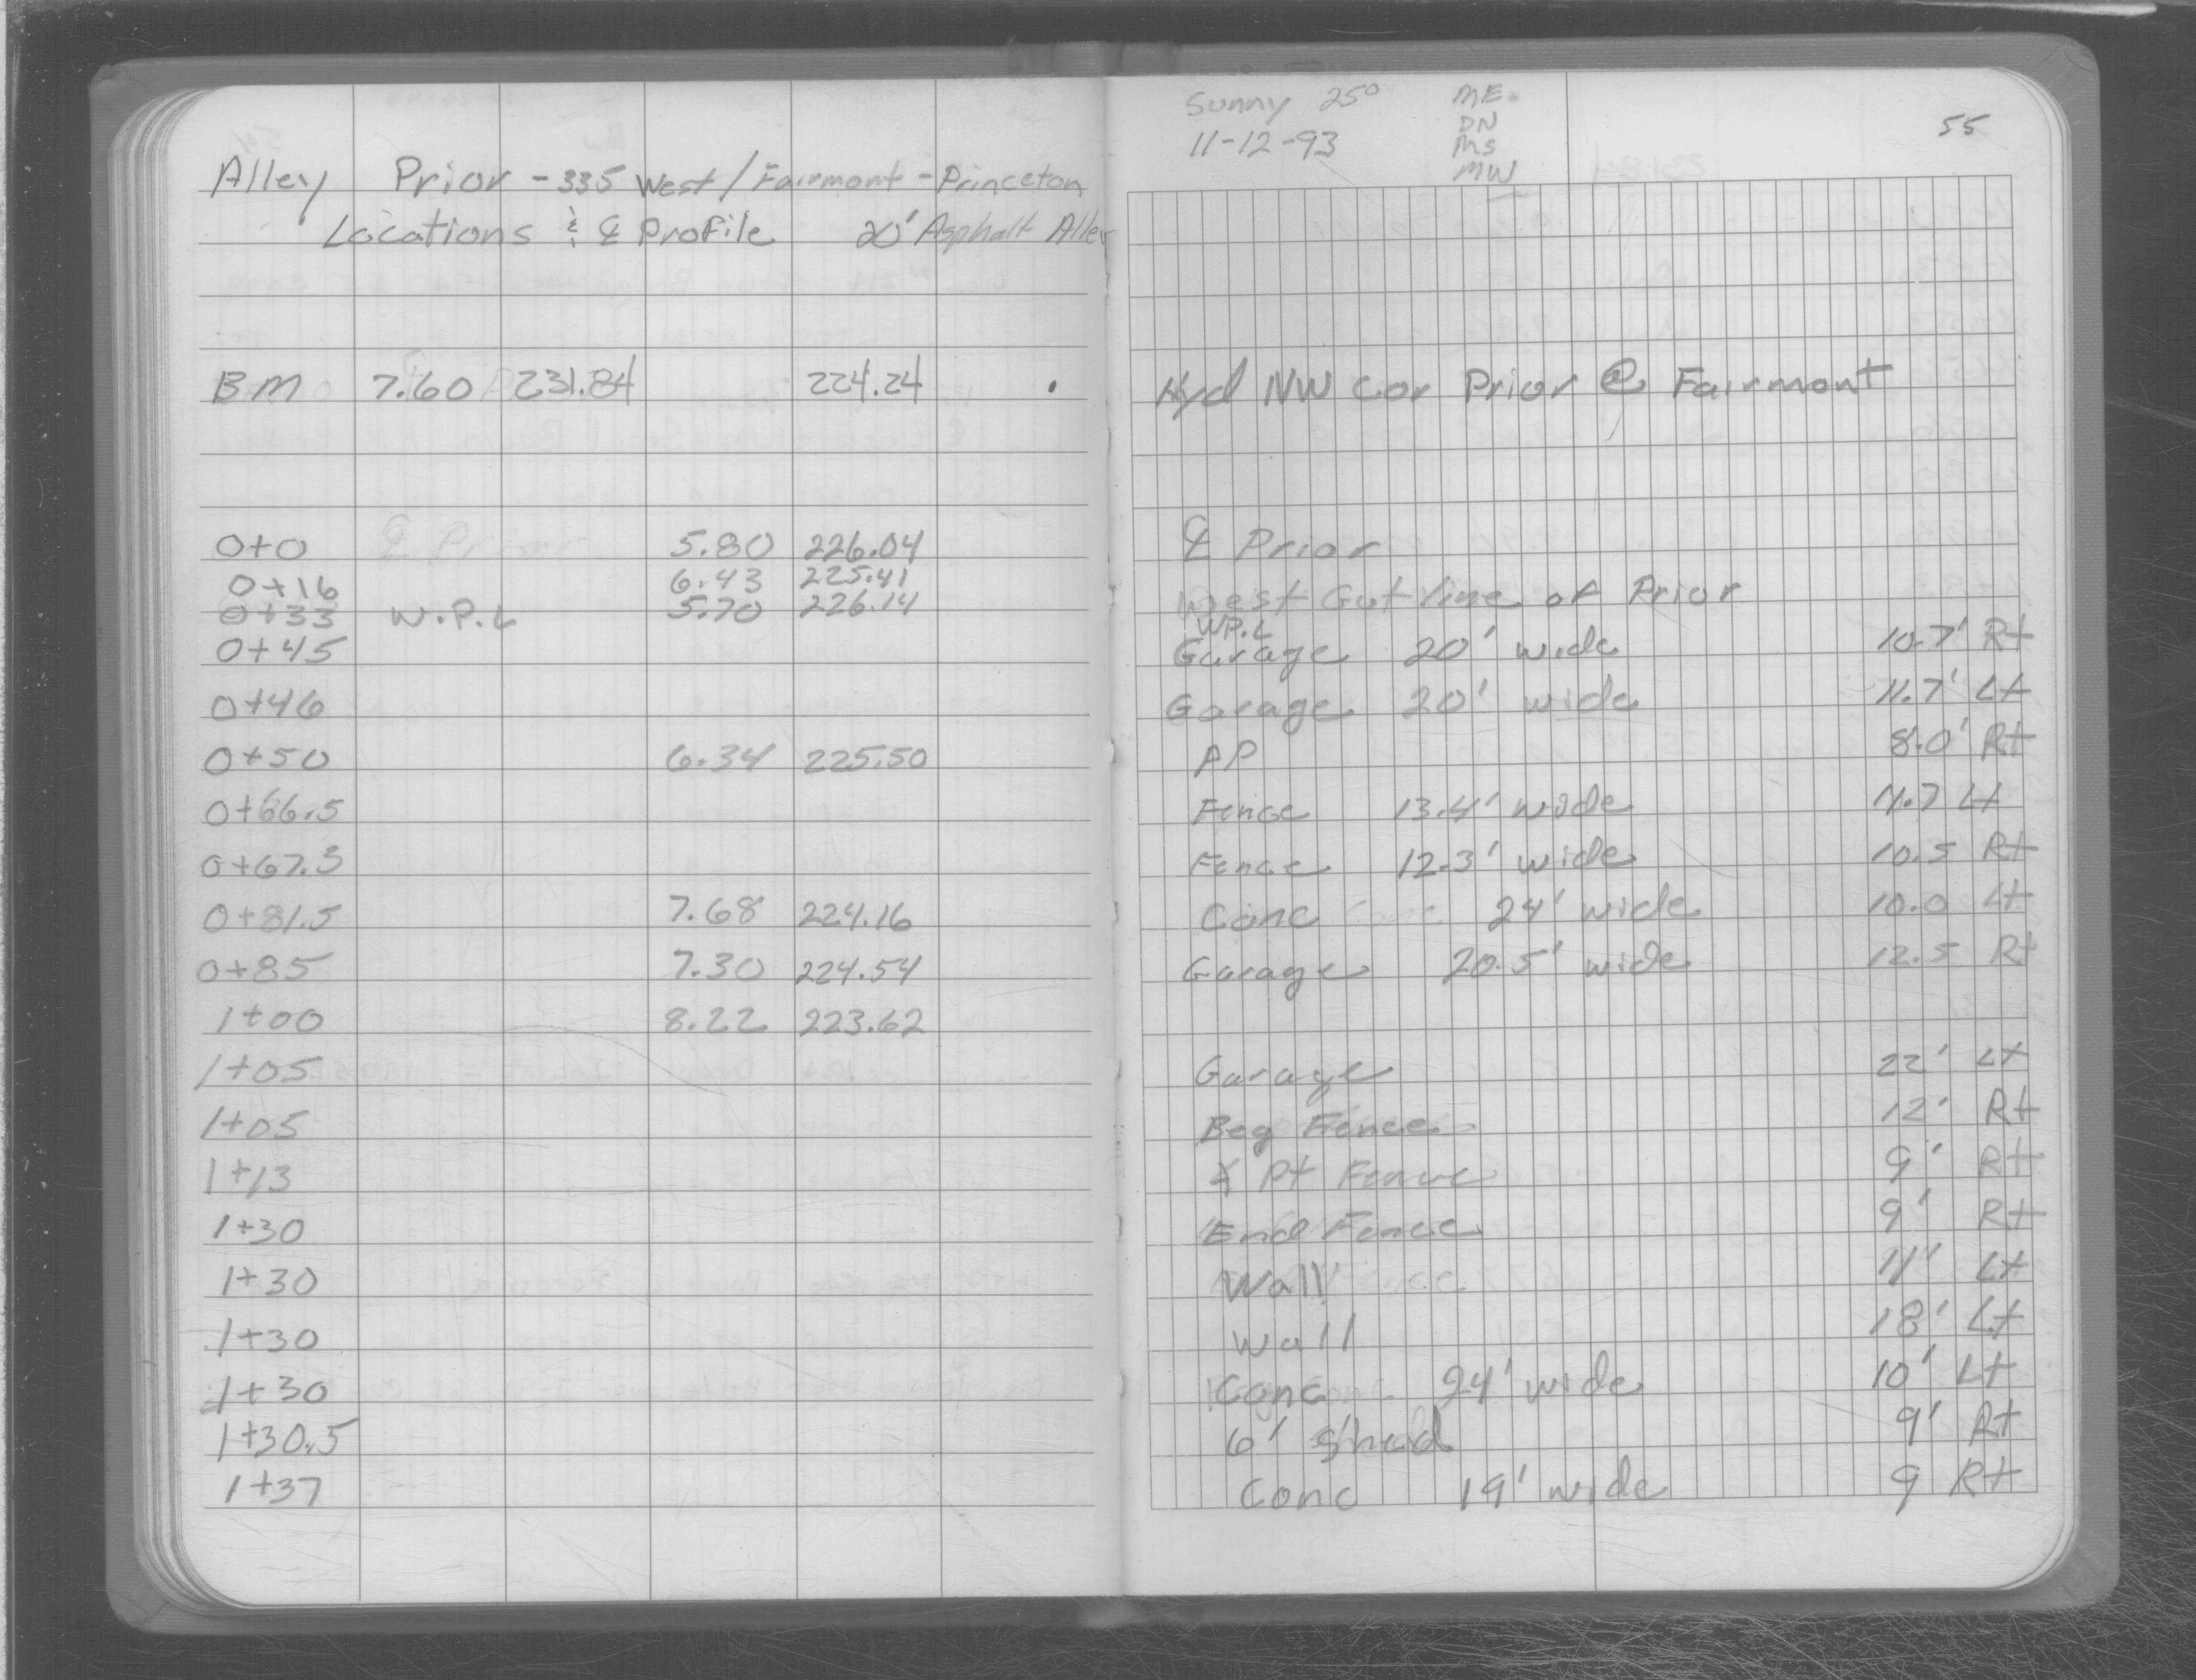 Sunny 25° ME.
DN
11-12-93 MS
MW
55
Alley Prior - 335 West / Fairmont - Princeton
Locations & ℄ Profile 20' Asphalt Alley
BM 7.60 231.84 224.24 Hyd NW Cor Prior @ Fairmont
0+0 ℄ Prior 5.80 226.04 ℄ Prior
0+16 6.43 225.41 West Gutline of Prior
0+33 W.P.L 5.70 226.14 W.P.L
0+45 Garage 20' wide 10.7' Rt
0+46 Garage 20' wide 11.7' Lt
0+50 6.34 225.50 PP 8.0' Rt
0+66.5 Fence 13.4' wide 11.7 Lt
0+67.3 Fence 12.3' wide 10.5 Rt
0+81.5 7.68 224.16 Conc 24' wide 10.0 Lt
0+85 7.30 224.54 Garage 20.5' wide 12.5 Rt
1+00 8.22 223.62
1+05 Garage 22' Lt
1+05 Beg Fence 12' Rt
1+13 ∠ Pt Fence 9' Rt
1+30 End Fence 9' Rt
1+30 Wall 11' Lt
1+30 Wall 18' Lt
1+30 Conc 24' wide 10' Lt
1+30.5 6' Shed 9' Rt
1+37 Conc 19' wide 9 Rt